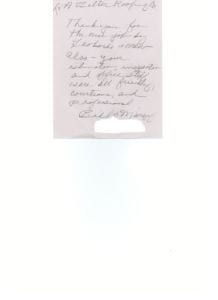 A Better Roofing Co
Thank you for
the nice job by
Leobardo
Also - your
estimator, inspector
and office staff
were all friendly,
courteous, and
professional